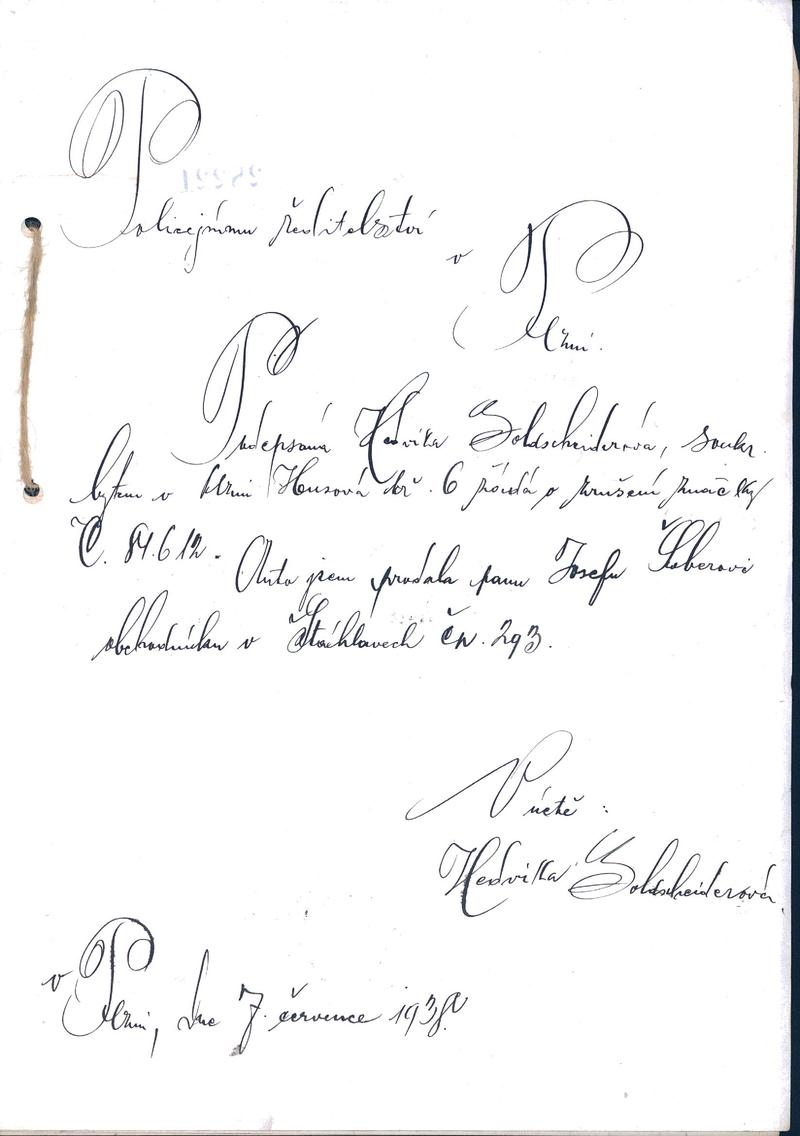 Policejnímu ředitelství
v
Plzni.
Podepsaná Hedvika Goldscheiderová, soukr.
bytem v Plzni Husová 6 žádá o zrušení značky
Č. 84.612. Auto jsem prodala panu Josefu Šloberovi
obchodníku v Štáhlavech čp. 293.
V úctě :
Hedvika Goldscheiderová.
v Plzni, dne 7. července 1938.